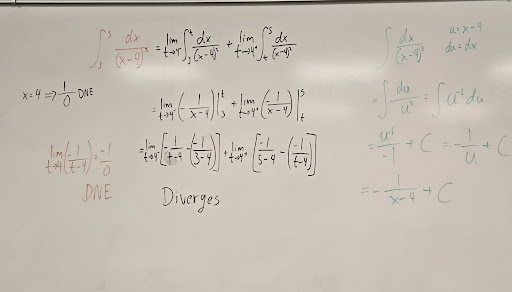 ∫₃⁵ dx/(x-4)² = lim t→4⁻ ∫₃ᵗ dx/(x-4)² + lim t→4⁺ ∫ₜ⁵ dx/(x-4)²
x=4 ⇒ 1/0 DNE
= lim t→4⁻ (-1/(x-4))|₃ᵗ + lim t→4⁺ (-1/(x-4))|ₜ⁵
= lim t→4⁻ [-1/(t-4) - (-1/(3-4))] + lim t→4⁺ [-1/(5-4) - (-1/(t-4))]
lim t→4 (-1/(t-4)) = -1/0
DNE
Diverges
∫ dx/(x-4)² u=x-4
du=dx
= ∫ du/u² = ∫ u⁻² du
= u⁻¹/-1 + C = -1/u + C
= -1/(x-4) + C